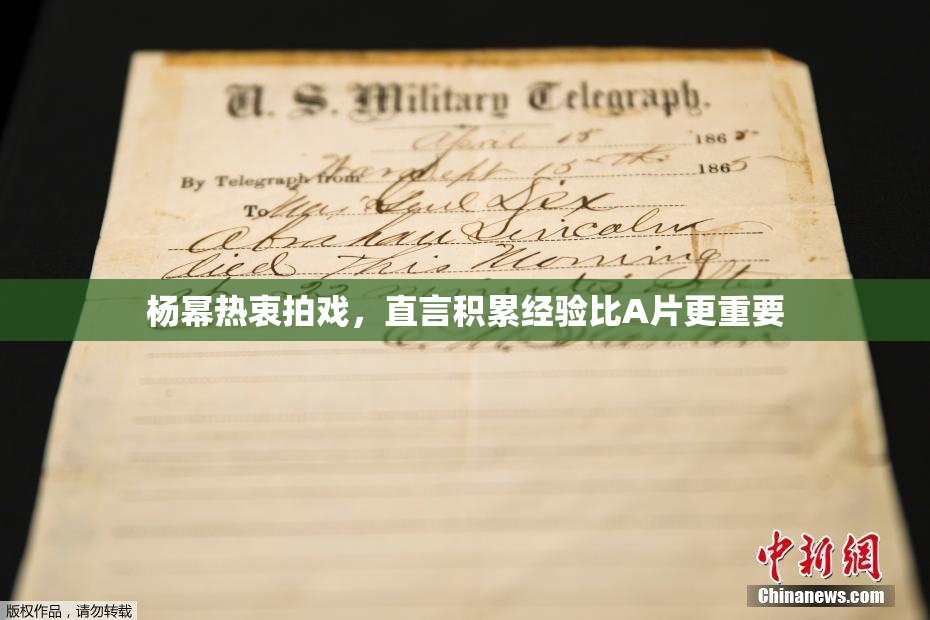 U. S. Military Telegraph.
April 15 1865
By Telegraph from War Dept 15th 1865
To Maj Genl Dix
Abraham Lincoln
died This Morning
22 minutes after
杨幂热衷拍戏，直言积累经验比A片更重要
E. M. Stanton
中新網
Chinanews.com
版权作品，请勿转载